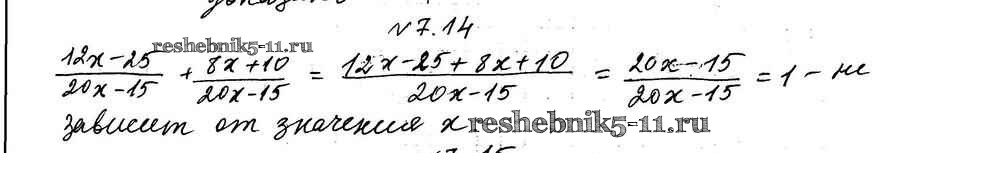 №7.14
reshebnik5-11.ru
(12x-25)/(20x-15) + (8x+10)/(20x-15) = (12x-25+8x+10)/(20x-15) = (20x-15)/(20x-15) = 1 - не
зависит от значения x reshebnik5-11.ru